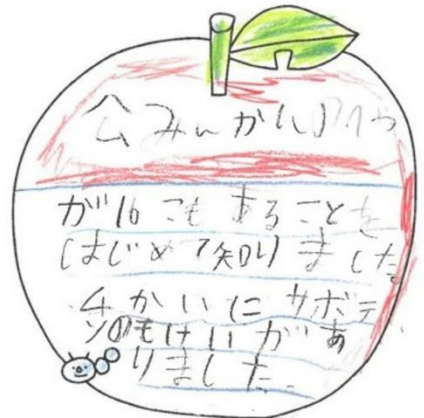 公みんかん
が16こもあることを
はじめて知りました。
4かいにサボテ
ンのもけいがあ
りました.